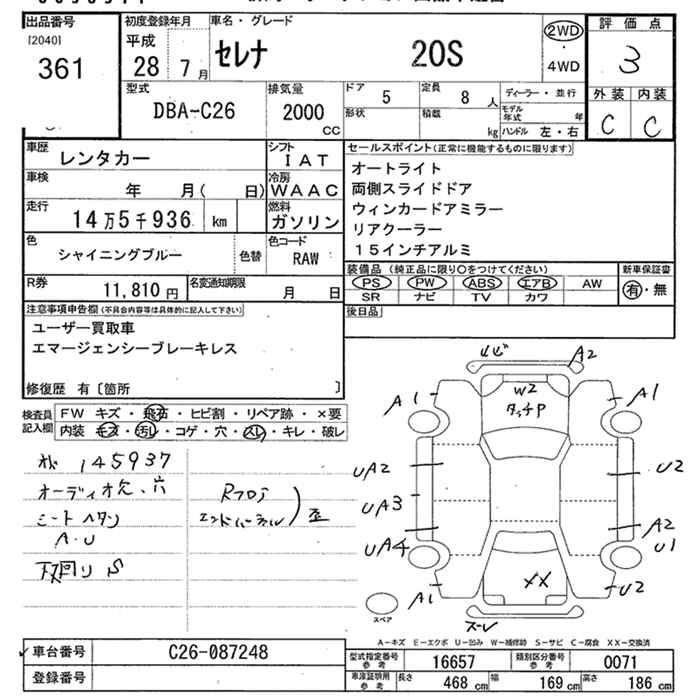 出品番号
[2040]
361
初度登録年月
平成
28 7月
車名・グレード
セレナ 20S
2WD
・
4WD
評価点
3
外装 内装
C C
型式
DBA-C26
排気量
2000
CC
ドア 5
定員 8 人
ディーラー・並行
形状
積載 kg
モデル年式 年
ハンドル 左・右
車歴 レンタカー
シフト IAT
車検 年 月( 日)
冷房 WAAC
走行 14万5千936 km
燃料 ガソリン
色 シャイニングブルー 色替
色コード RAW
R券 11,810 円
名変通知期限 月 日
セールスポイント(正常に機能するものに限ります)
オートライト
両側スライドドア
ウィンカードアミラー
リアクーラー
15インチアルミ
装備品(純正品に限り○をつけてください)
PS PW ABS エアB AW
SR ナビ TV カワ
新車保証書
有・無
後日品
注意事項申告欄(不具合内容等は具体的に記入して下さい)
ユーザー買取車
エマージェンシーブレーキレス
修復歴 有〔箇所 〕
検査員記入欄
FW キズ・飛石・ヒビ割・リペア跡・×要
内装 キズ・汚レ・コゲ・穴・スレ・キレ・破レ
145937
オーディオ欠、穴
シートヘタリ
A・U
下回りS
Rフロア
エンドパネル
歪
ヒビ A2
A1
W2
タッチP
A1
UA2
U2
UA3
UA4
A2
U1
A1
XX
U2
スレ
スペア
A-キズ E-エクボ U-凹み W-補修跡 S-サビ C-腐食 XX-交換済
車台番号 C26-087248
登録番号
型式指定番号 参考 16657
類別区分番号 参考 0071
車庫証明用 参考 長さ 468 cm 幅 169 cm 高さ 186 cm